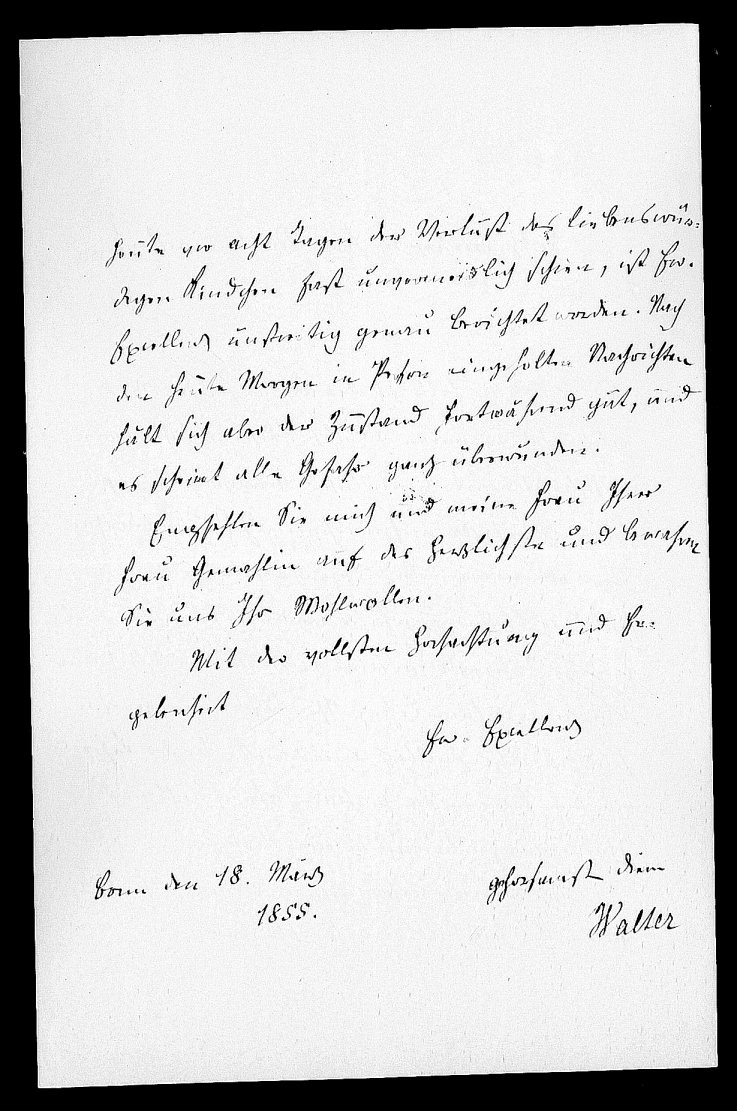 heute vor acht Tagen der Verlust des liebenswür-
digen Kindchen fast unvermeidlich schien, ist Ew.
Excellenz unstreitig genau berichtet worden. Nach
den heute Morgen in Person eingeholten Nachrichten
hält sich aber der Zustand fortwährend gut, und
es scheint alle Gefahr ganz überwunden.
Empfehlen Sie mich und meine Frau Ihrer
Frau Gemahlin auf das Herzlichste und bewahren
Sie uns Ihr Wohlwollen.
Mit der vollsten Hochachtung und Er-
gebenheit
Ew. Excellenz
Bonn den 18. März
1855.
gehorsamst
Walter